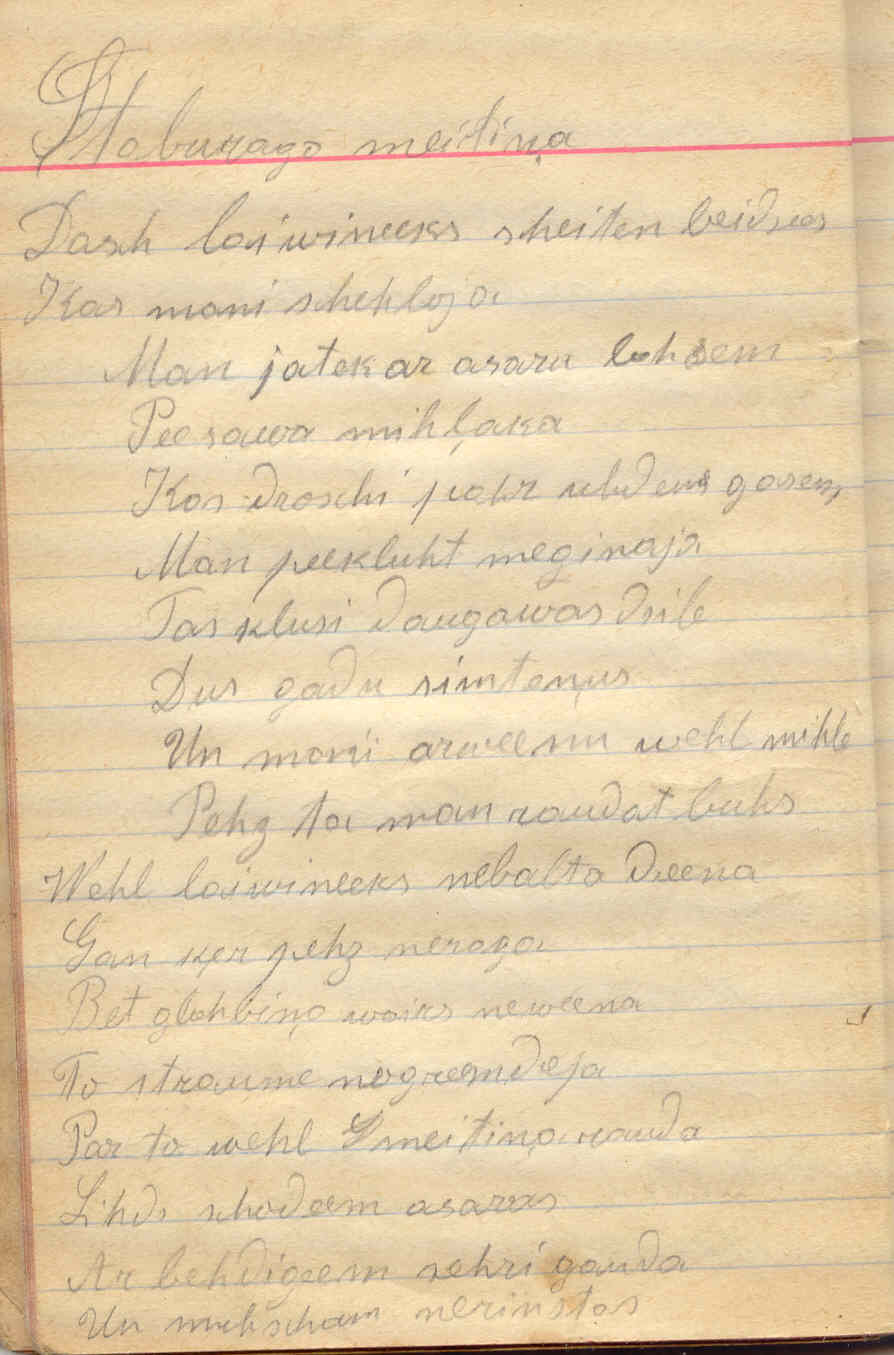 Staburago meitiņa
Dasch laiwineeks scheiten beidsas
Kas mani schehloja
Man jatek ar asaru lahsem
Pee sawa mihļaka
Kas droschi pahr uhdens gasem
Man peekluht meginaja
Tas klusi daugawas dsile
Dus gadu simteņus
Un mani arweenu wehl mihlè
Pehz ta man raudat buhs
Wehl laiwineeks nebalta deena
Gan ķer pehz neraga
Bet glahbiņa wairs neweena
To straume nogremdeja
Par to wehl meitiņa rauda
Lihds schodeem asaras
Ar behdigeem sehri gauda
Un muhscham nerimstas